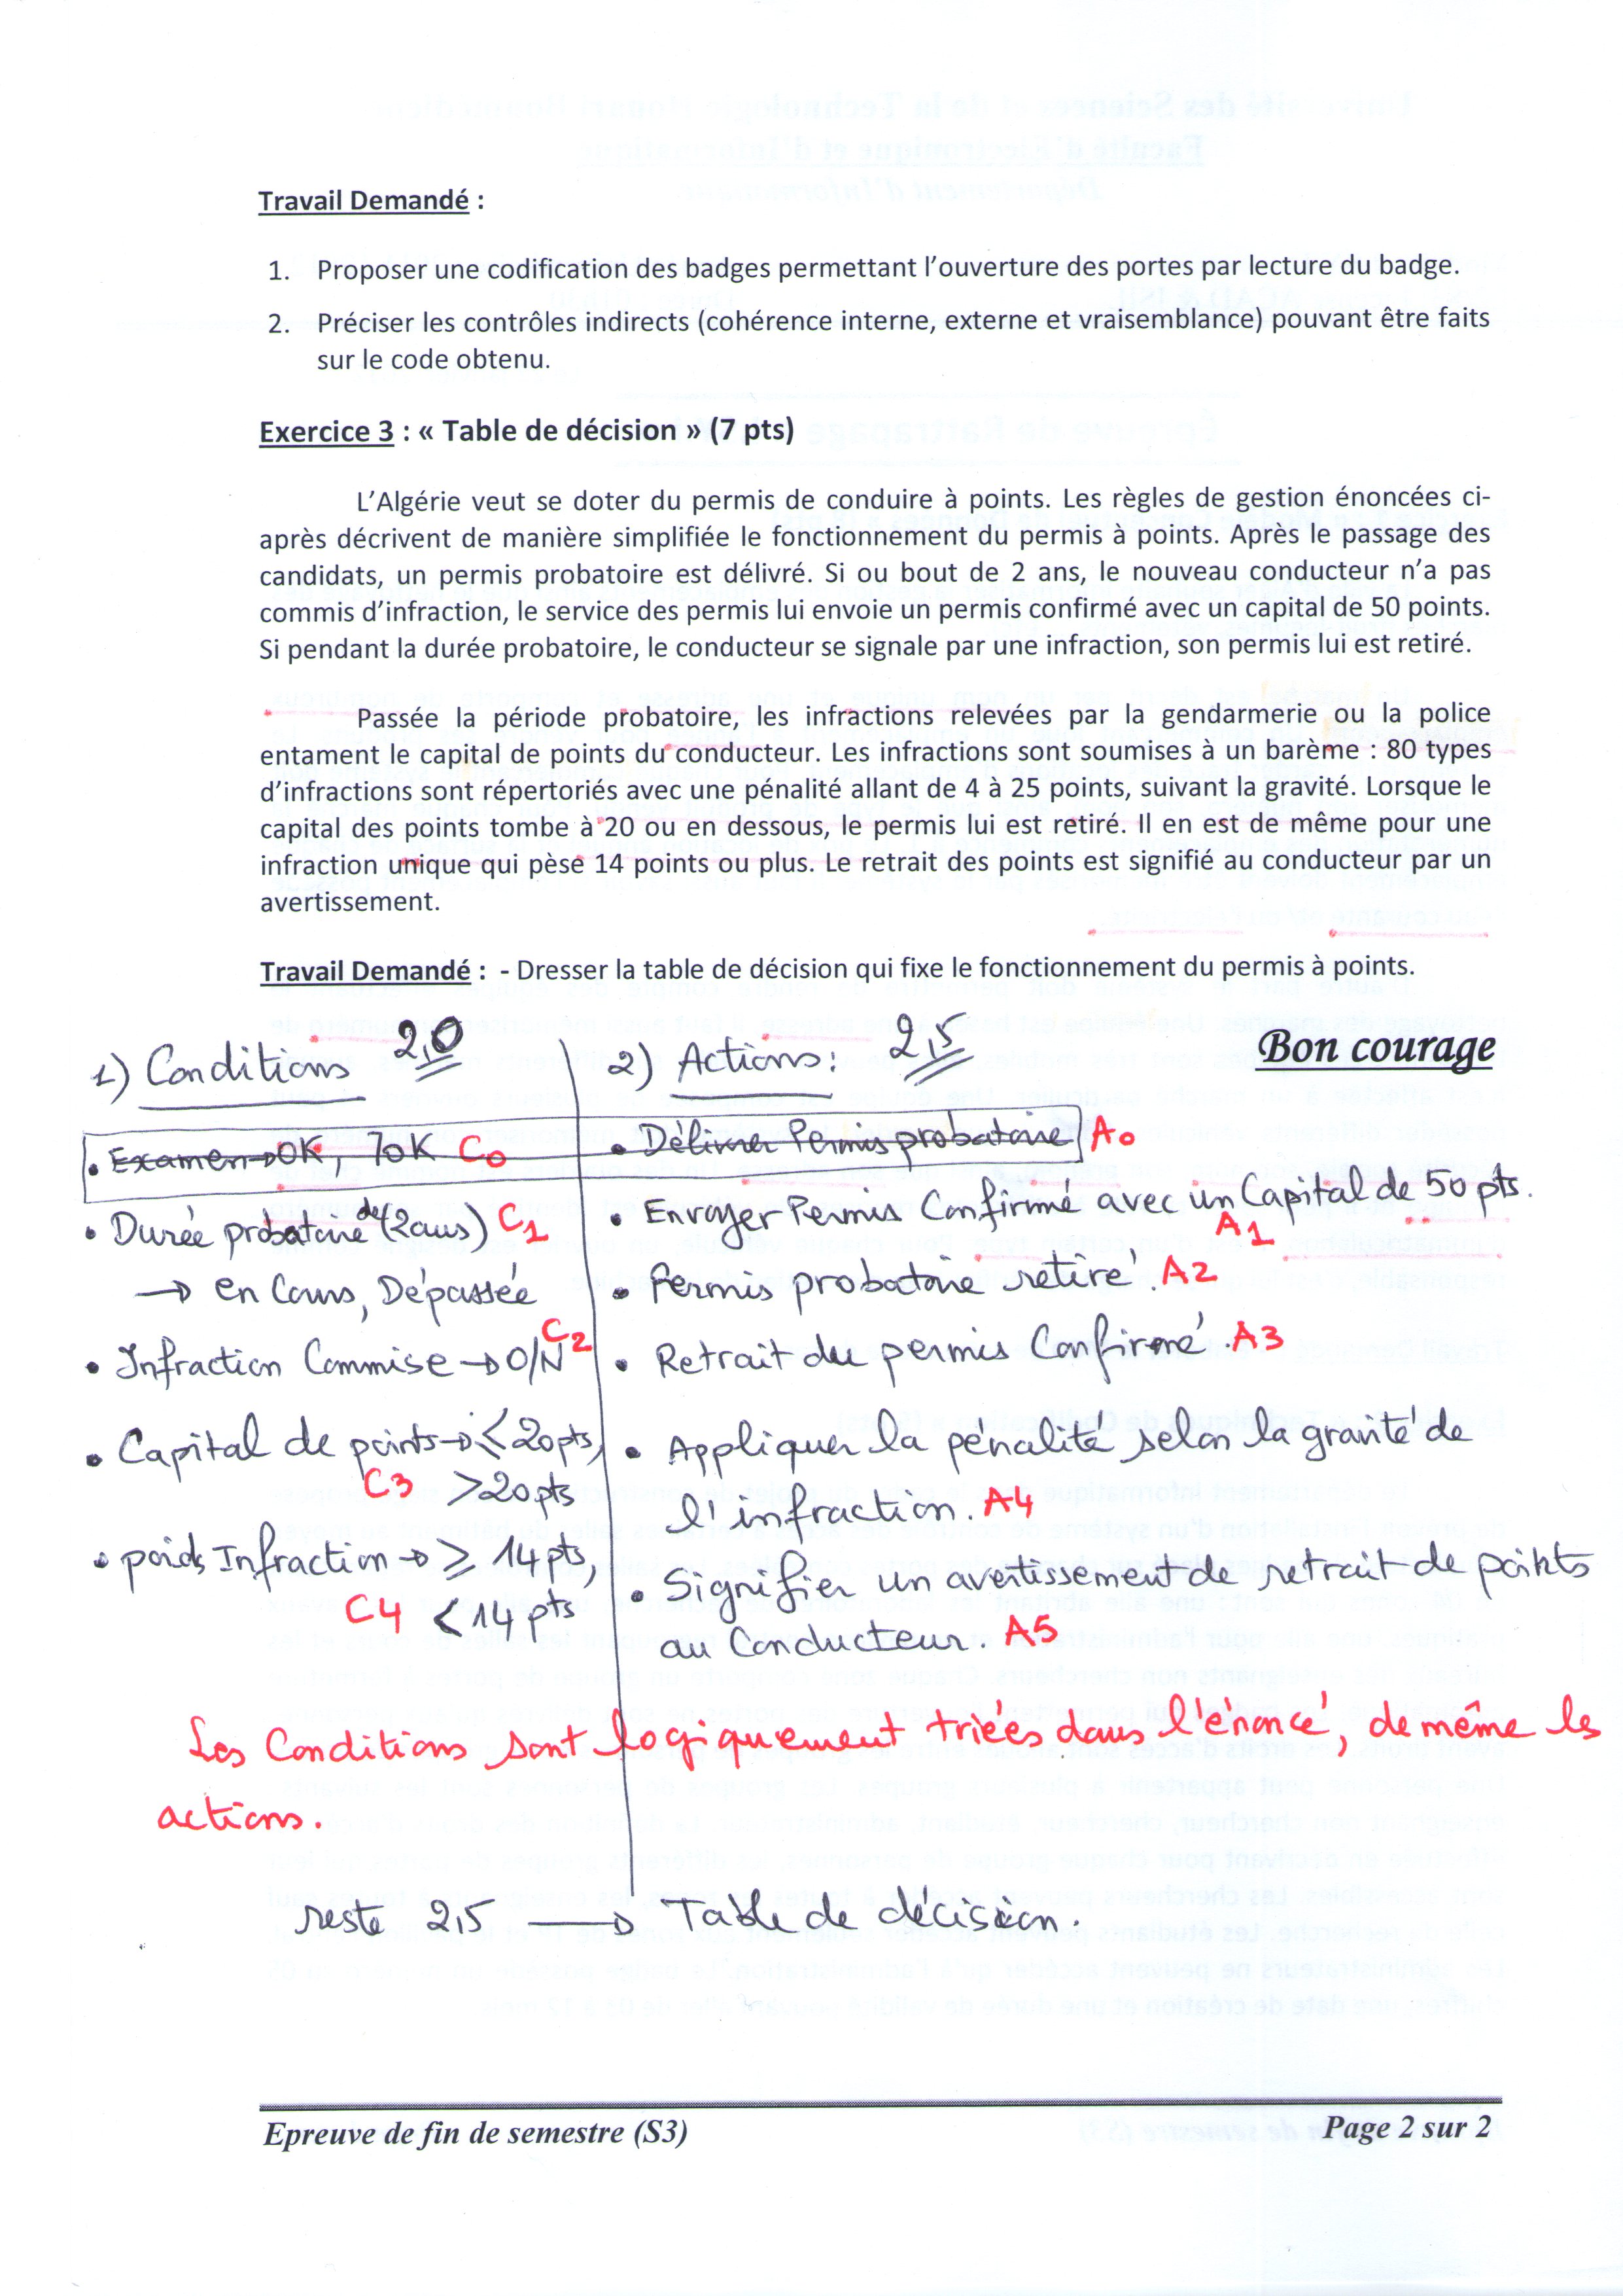 Travail Demandé :
1. Proposer une codification des badges permettant l'ouverture des portes par lecture du badge.
2. Préciser les contrôles indirects (cohérence interne, externe et vraisemblance) pouvant être faits
sur le code obtenu.
Exercice 3 : « Table de décision » (7 pts)
L'Algérie veut se doter du permis de conduire à points. Les règles de gestion énoncées ci-
après décrivent de manière simplifiée le fonctionnement du permis à points. Après le passage des
candidats, un permis probatoire est délivré. Si ou bout de 2 ans, le nouveau conducteur n'a pas
commis d'infraction, le service des permis lui envoie un permis confirmé avec un capital de 50 points.
Si pendant la durée probatoire, le conducteur se signale par une infraction, son permis lui est retiré.
Passée la période probatoire, les infractions relevées par la gendarmerie ou la police
entament le capital de points du conducteur. Les infractions sont soumises à un barème : 80 types
d'infractions sont répertoriés avec une pénalité allant de 4 à 25 points, suivant la gravité. Lorsque le
capital des points tombe à 20 ou en dessous, le permis lui est retiré. Il en est de même pour une
infraction unique qui pèse 14 points ou plus. Le retrait des points est signifié au conducteur par un
avertissement.
Travail Demandé : - Dresser la table de décision qui fixe le fonctionnement du permis à points.
Bon courage
1) Conditions 2,0
• Examen → OK ⌉OK C0
• Durée probatoire de (2ans) C1
→ en Cours, Dépassée
• Infraction Commise → O/N C2
• Capital de points → ≤ 20pts,
C3 > 20pts
• poids Infraction → ≥ 14pts,
C4 < 14pts
2) Actions : 2,5
• Délivrer Permis probatoire A0
• Envoyer Permis Confirmé avec un Capital de 50 pts.
A1
• Permis probatoire retiré. A2
• Retrait du permis Confirmé. A3
• Appliquer la pénalité selon la gravité de
l'infraction. A4
• Signifier un avertissement de retrait de points
au Conducteur. A5
Les Conditions sont logiquement triées dans l'énoncé, de même les
actions.
reste 2,5 → Table de décision.
Epreuve de fin de semestre (S3)
Page 2 sur 2